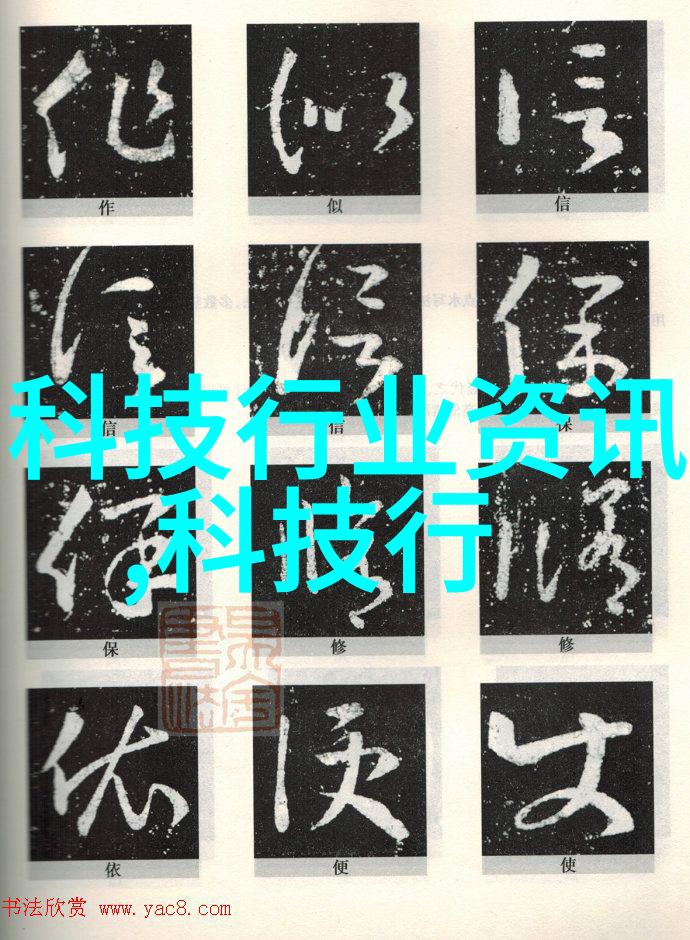 作 似 信
信 信 保
科技行业资讯
,科技行
保 修 修
依 便 使
书法欣赏 www.yac8.com